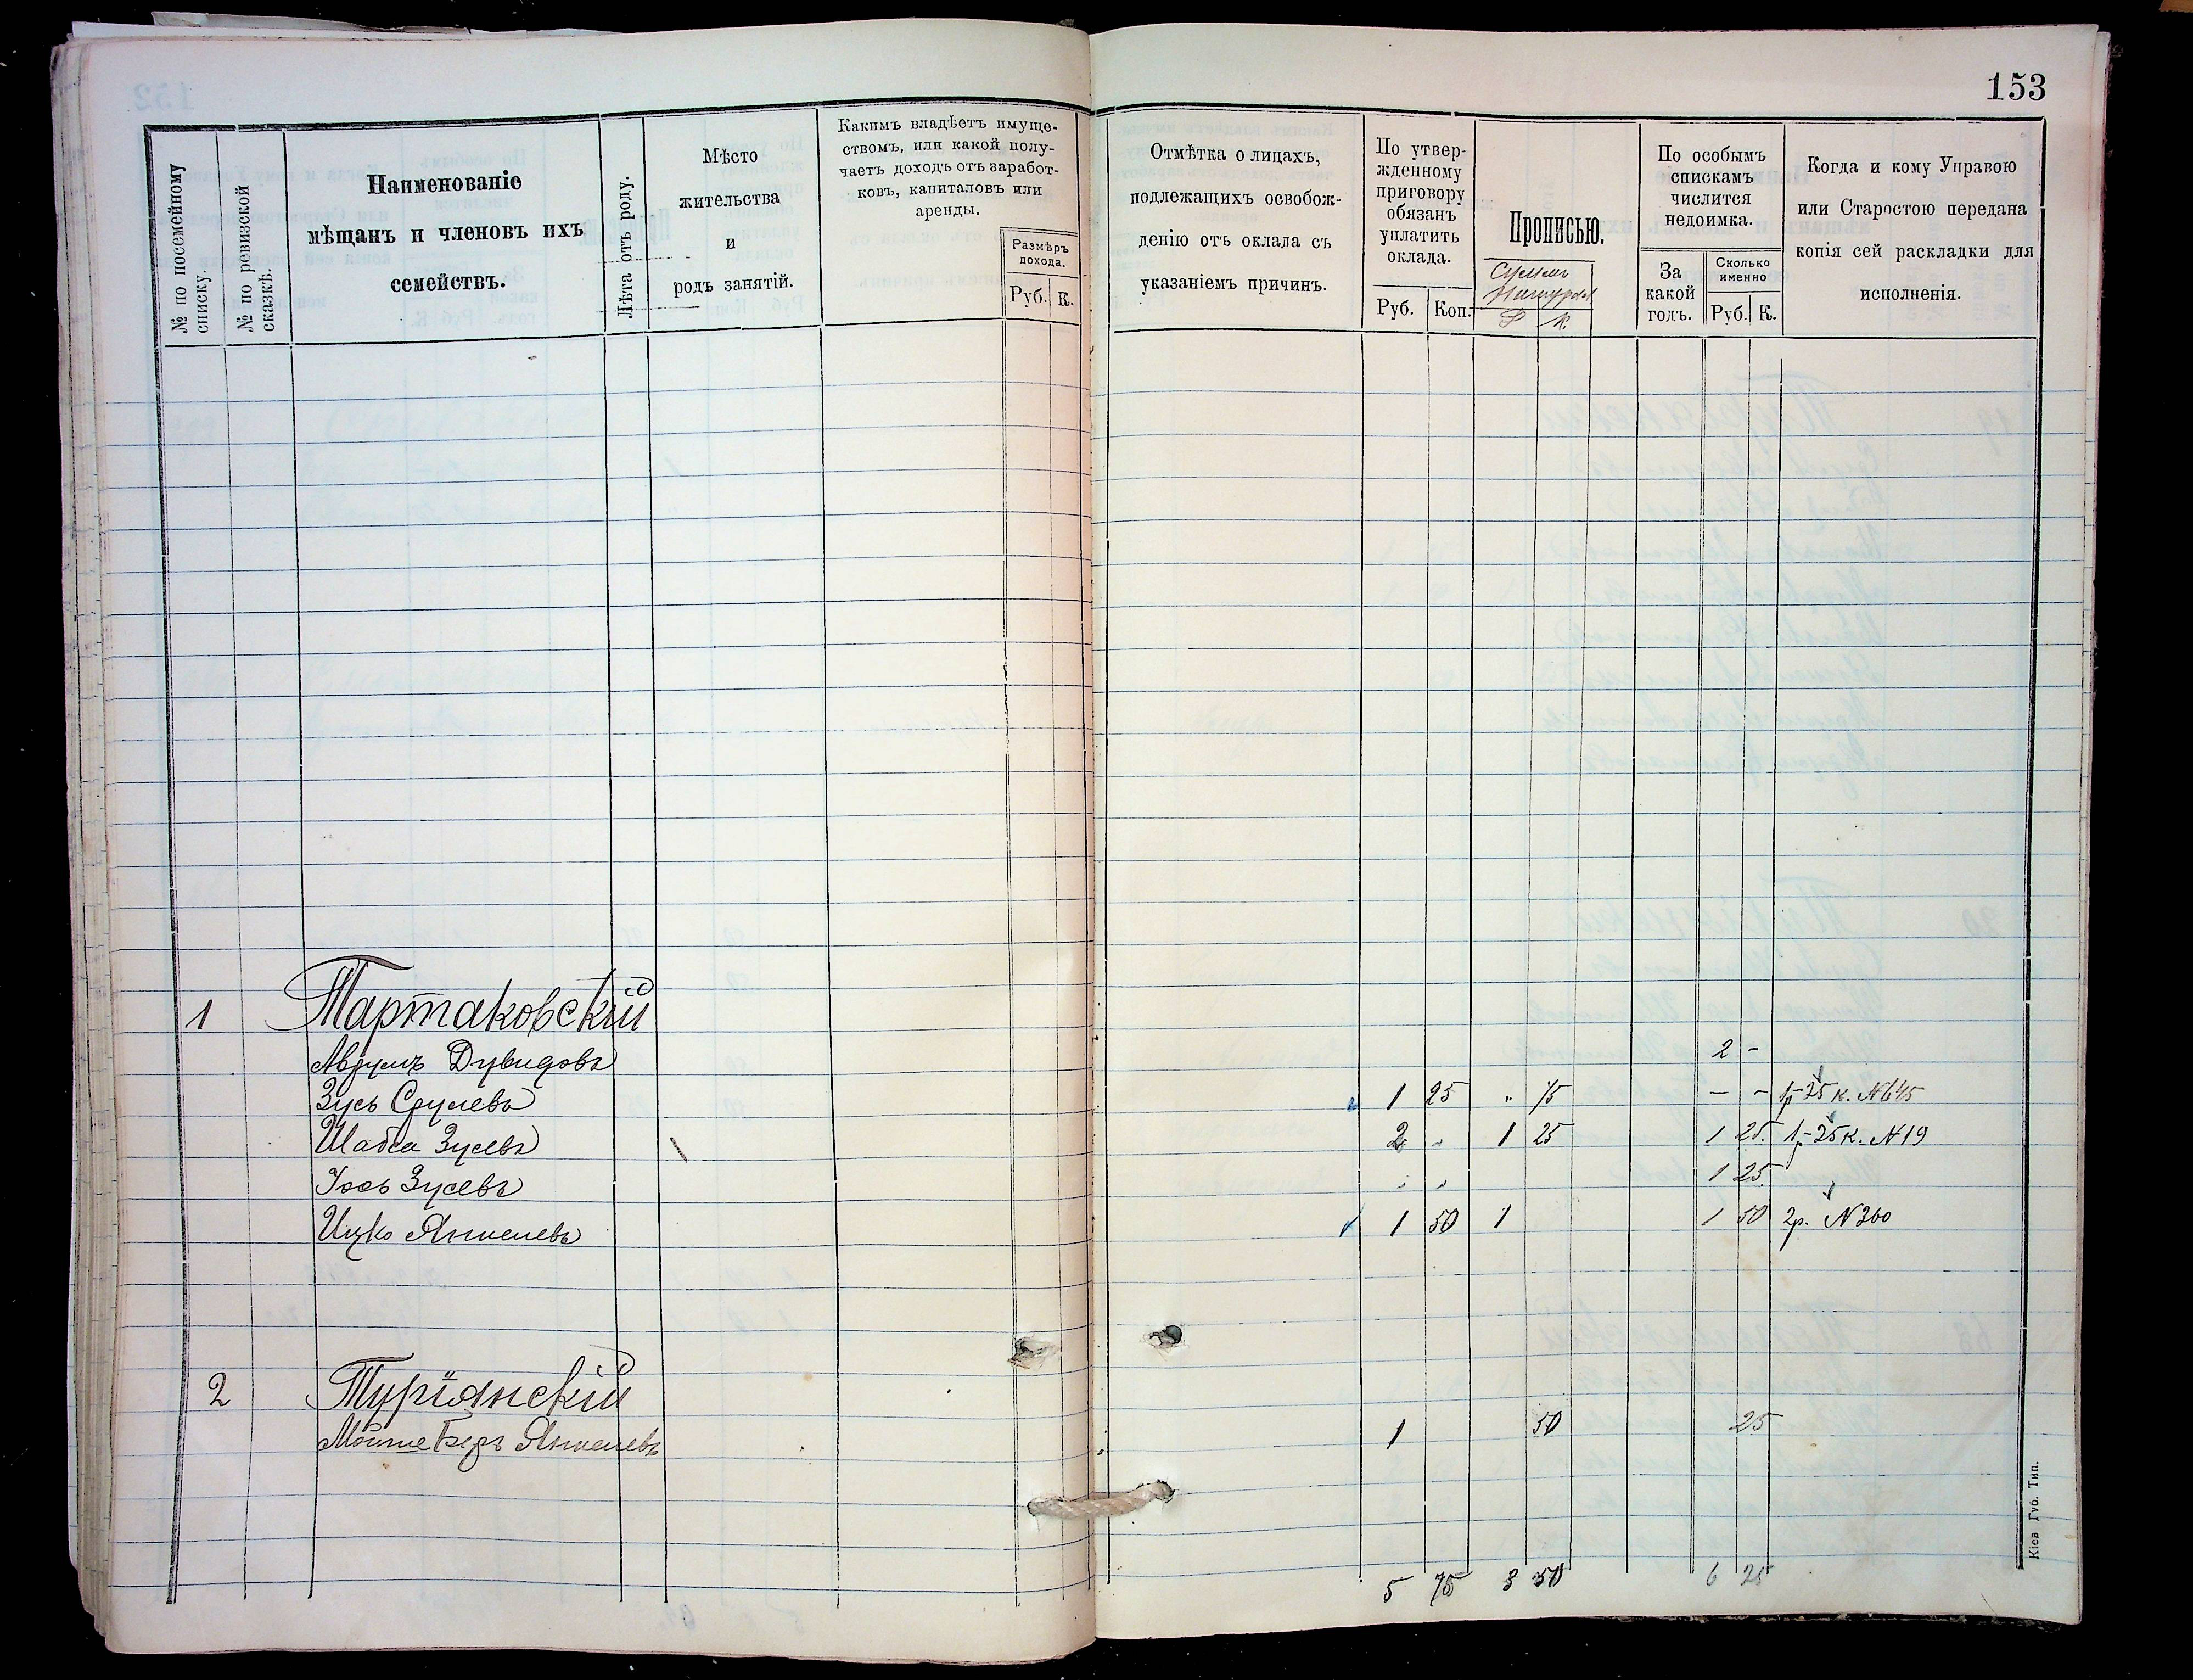 153
№ по посемейному
списку.
№ по ревизской
сказкѣ.
Наименованіе
мѣщанъ и членовъ ихъ
семействъ.
Лѣта отъ роду.
Мѣсто
жительства
и
родъ занятій.
Какимъ владѣетъ имуще-
ствомъ, или какой полу-
чаетъ доходъ отъ заработ-
ковъ, капиталовъ или
аренды.
Размѣръ
дохода.
Руб. К.
Отмѣтка о лицахъ,
подлежащихъ освобож-
денію отъ оклада съ
указаніемъ причинъ.
По утвер-
жденному
приговору
обязанъ
уплатить
оклада.
Руб. Коп.
Прописью.
Р К.
По особымъ
спискамъ
числится
недоимка.
За
какой
годъ.
Сколько
именно
Руб. К.
Когда и кому Управою
или Старостою передана
копія сей раскладки для
исполненія.
1 Тартаковскій
Аврумъ Дувидовъ 2 -
Зусь Срулевъ 1 25 " 75 - - 1р 25 к. №645
Шабса Зусевъ 2 " 1 25 1 25. 1р-25к. №19
Іось Зусевъ " " 1 25
Ицко Янкелевъ 1 50 1 1 50 2р. №360
2 Туріанскій
Мошке Беръ Янкелевъ 1 50 25
5 75 3 50 6 25
Кіев Губ. Тип.